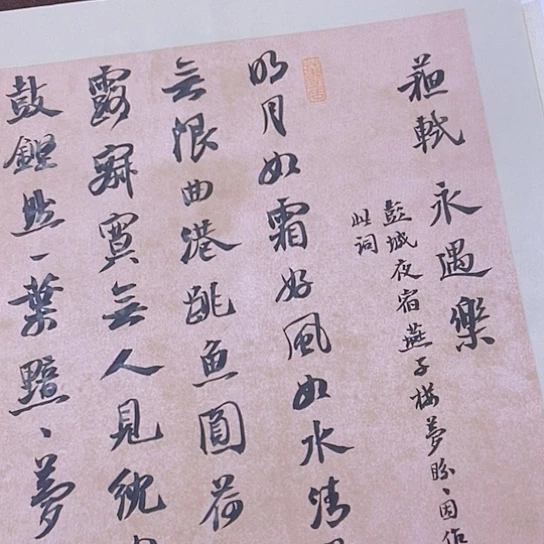 蘇軾 永遇樂
彭城夜宿燕子樓夢盼、因作
此詞
明月如霜好風如水清
無限曲港跳魚圓荷
露寂寞無人見紞
鼓鏗然一葉黯、夢